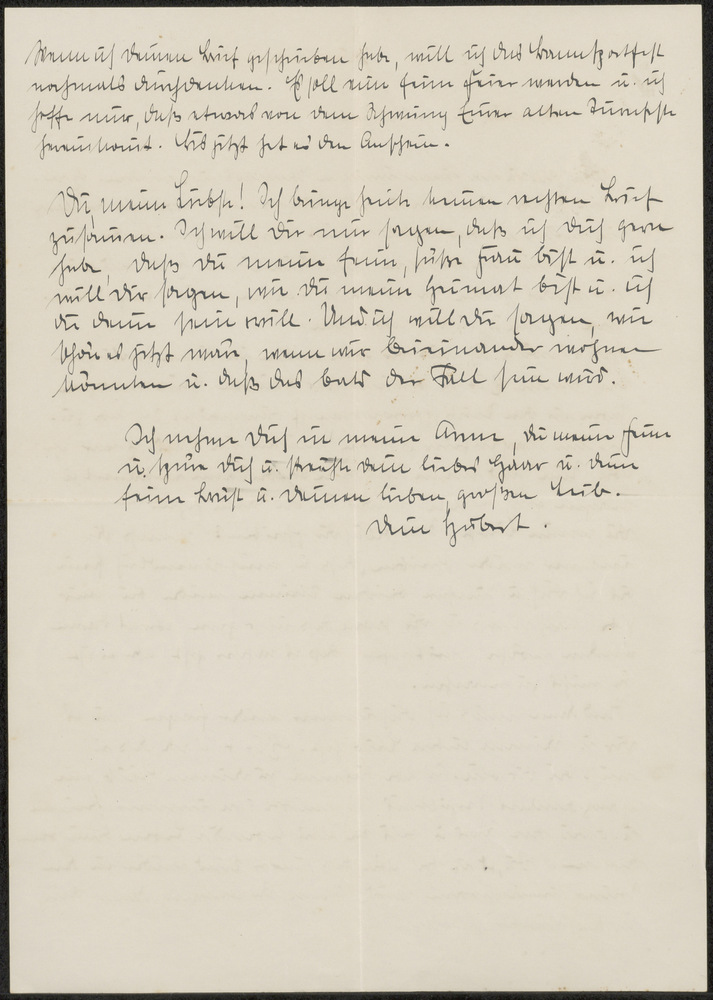 Wenn ich Deinen Brief geschrieben habe, will ich das Bannsportfest
nochmals durchdenken. Es soll eine feine Feier werden u. ich
hoffe nur, daß etwas von dem Schwung Eurer alten Turnfeste
hereinkommt. Bis jetzt hat es den Anschein.
Du, meine Liebste! Ich bringe heute keinen rechten Brief
zusammen. Ich will Dir nur sagen, daß ich Dich gern
habe, daß Du meine feine, süße Frau bist u. ich
will Dir sagen, wie Du meine Heimat bist u. ich
die Deine sein will. Und ich will Dir sagen, wie
schön es jetzt wäre, wenn wir beieinander wohnen
könnten u. daß das bald der Fall sein wird.
Ich nehme Dich in meine Arme, du meine Feine
u. spüre Dich u. streichle dein liebes Haar u. deine
feine Brust u. Deinen lieben, großen Leib.
Dein Hubert.